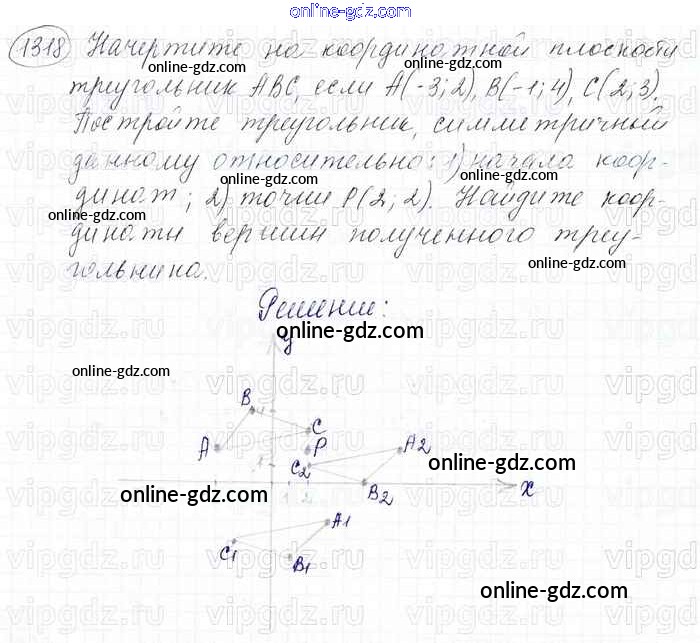 online-gdz.com
1318 Начертите на координатной плоскости
треугольник ABC, если A(-3; 2), B(-1; 4), C(2; 3).
Постройте треугольник, симметричный
данному относительно: 1) начала коор-
динат; 2) точки P(2; 2). Найдите коор-
динаты вершин полученного треу-
гольника.
Решение:
online-gdz.com
online-gdz.com
online-gdz.com
online-gdz.com
online-gdz.com
online-gdz.com
online-gdz.com
online-gdz.com
online-gdz.com
online-gdz.com
online-gdz.com
online-gdz.com
y
B
4
C
A
P
A2
1
C2
1 2
B2
x
A1
C1
B1
vipgdz.ru